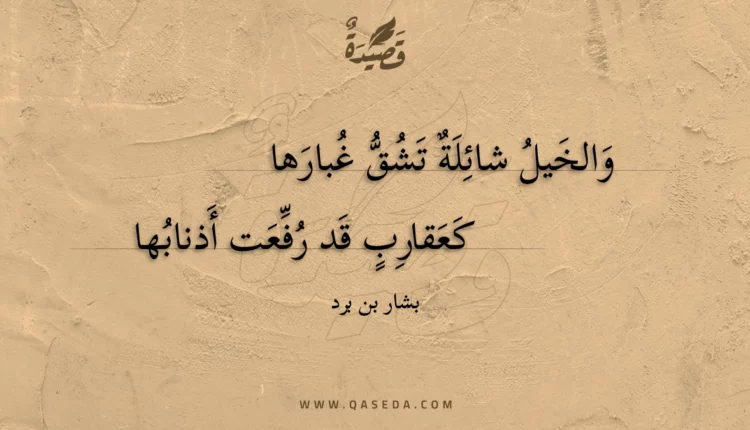 قَصِيدَةٌ
وَالخَيلُ شائِلَةٌ تَشُقُّ غُبارَها
كَعَقارِبٍ قَد رُفِّعَت أَذنابُها
بشار بن برد
WWW.QASEDA.COM